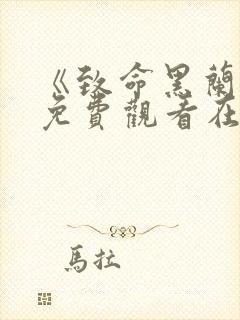 《致命黑蘭
免費觀看在
馬拉